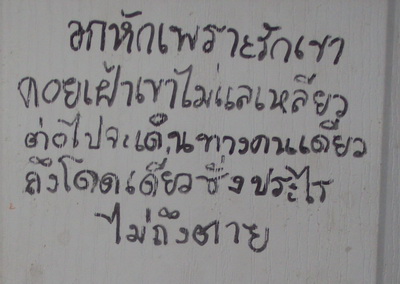 อกหักเพราะรักเขา
คอยเฝ้าเขาไม่แลเหลียว
ต่อไปจะเดินทางคนเดียว
ถึงโดดเดี่ยวซึ่งประไร
ไม่ถึงตาย